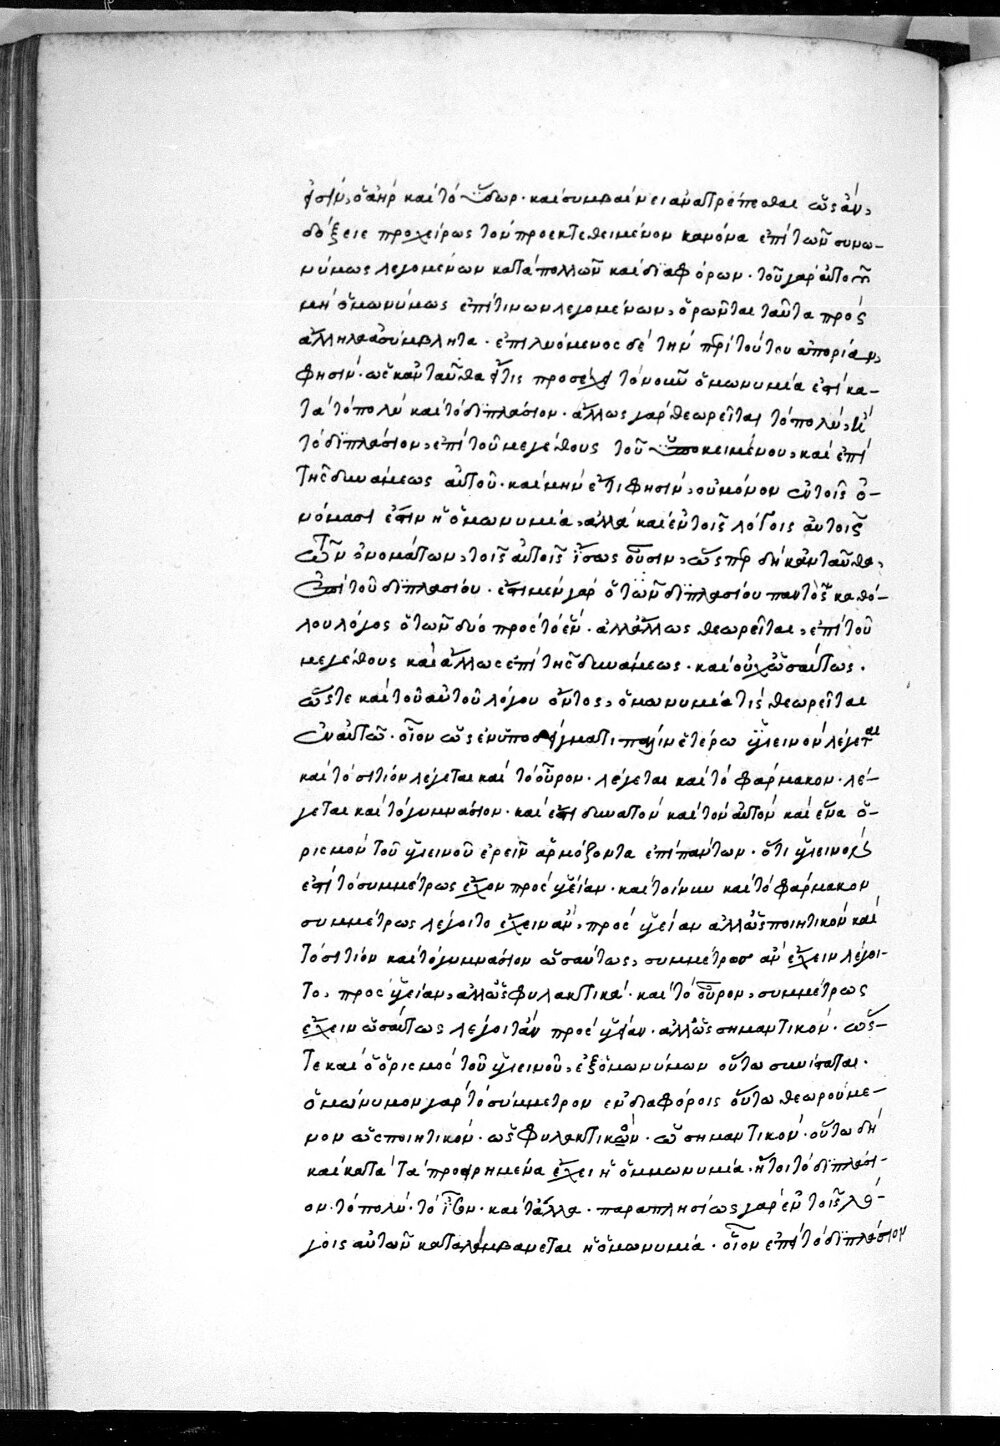 ἐστὶν, ὁ ἀὴρ καὶ τὸ ὕδωρ. καὶ συμβαίνει ἀνατρέπεσθαι ὡς ἂν,
δόξειε προχείρως τὸν προεκτεθειμένον κανόνα ἐπὶ τῶν συνω-
νύμως λεγομένων κατὰ πολλῶν καὶ διαφόρων. τοῦ γὰρ αὐτοῦ
μὴ ὁμωνύμως ἐπί τινων λεγομένων, ὁρῶνται ταῦτα πρὸς
ἄλληλα ἀσύμβλητα. ἐπιλυόμενος δὲ τὴν περὶ τούτου ἀπορίαν,
φησὶν. ὡς κἀνταῦθα εἴ τις προσέχει τὸν νοῦν ὁμωνυμία ἐστὶ κα-
τὰ τὸ πολὺ καὶ τὸ διπλάσιον. ἄλλως γὰρ θεωρεῖται τὸ πολὺ, καὶ
τὸ διπλάσιον, ἐπὶ τοῦ μεγέθους τοῦ ὑποκειμένου, καὶ ἐπὶ
τῆς δυνάμεως αὐτοῦ. καὶ μὴν ἔτι φησὶν, οὐ μόνον αὐτοῖς ὀ-
νόμασί ἐστιν ἡ ὁμωνυμία, ἀλλὰ καὶ ἐν τοῖς λόγοις αὐτοῖς
τῶν ὀνομάτων, τοῖς αὐτοῖς ἴσως οὖσιν, ὥσπερ δὴ κἀνταῦθα,
ἐπὶ τοῦ διπλασίου. ἔστι μὲν γὰρ ὁ τῶν διπλασίου παντὸς καθό-
λου λόγος ὁ τῶν δύο πρὸς τὸ ἕν. ἀλλ' ἄλλως θεωρεῖται, ἐπὶ τοῦ
μεγέθους καὶ ἄλλως ἐπὶ τῆς δυνάμεως. καὶ οὐχ ὡσαύτως.
ὥστε καὶ τοῦ αὐτοῦ λόγου ὄντος, ὁμωνυμία τις θεωρεῖται
ἐν αὐτῷ. οἷον ὡς ἐν ὑποδείγματι πάλιν ἑτέρω ὑγιεινὸν λέγεται
καὶ τὸ σιτίον λέγεται καὶ τὸ οὖρον. λέγεται καὶ τὸ φάρμακον. λέ-
γεται καὶ τὸ γυμνάσιον. καὶ ἔστι δυνατὸν καὶ τὸν αὐτὸν καὶ ἕνα ὁ-
ρισμὸν τοῦ ὑγιεινοῦ ἐρεῖν ἁρμόζοντα ἐπὶ πάντων. ὅτι ὑγιεινόν
ἐστὶ τὸ συμμέτρως ἔχον πρὸς ὑγείαν. καὶ τοίνυν καὶ τὸ φάρμακον
συμμέτρως λέγοιτο ἔχειν ἂν, πρὸς ὑγείαν ἀλλ' ὡς ποιητικὸν καὶ
τὸ σιτίον καὶ τὸ γυμνάσιον ὡσαύτως, συμμέτρως ἂν ἔχειν λέγοι-
το, πρὸς ὑγείαν, ἀλλ' ὡς φυλακτικά. καὶ τὸ οὖρον, συμμέτρως
ἔχειν ὡσαύτως λέγοιτ' ἂν πρὸς ὑγείαν. ἀλλ' ὡς σημαντικόν. ὥσ-
τε καὶ ὁ ὁρισμὸς τοῦ ὑγιεινοῦ, ἐξ ὁμωνύμων οὕτω συνίσταται.
ὁμώνυμον γὰρ τὸ σύμμετρον ἐν διαφόροις οὕτω θεωρούμε-
νον ὡς ποιητικὸν. ὡς φυλακτικὸν. ὡς σημαντικόν. οὕτω δὴ
καὶ κατὰ τὰ προειρημένα ἔχει ἡ ὁμωνυμία. ἤτοι τὸ διπλάσι-
ον. τὸ πολὺ. τὸ ἴσον. καὶ τἆλλα. παραπλησίως γὰρ ἐν τοῖς λό-
γοις αὐτῶν καταλαμβάνεται ἡ ὁμωνυμία. οἷον ἐπὶ τὸ διπλάσιον